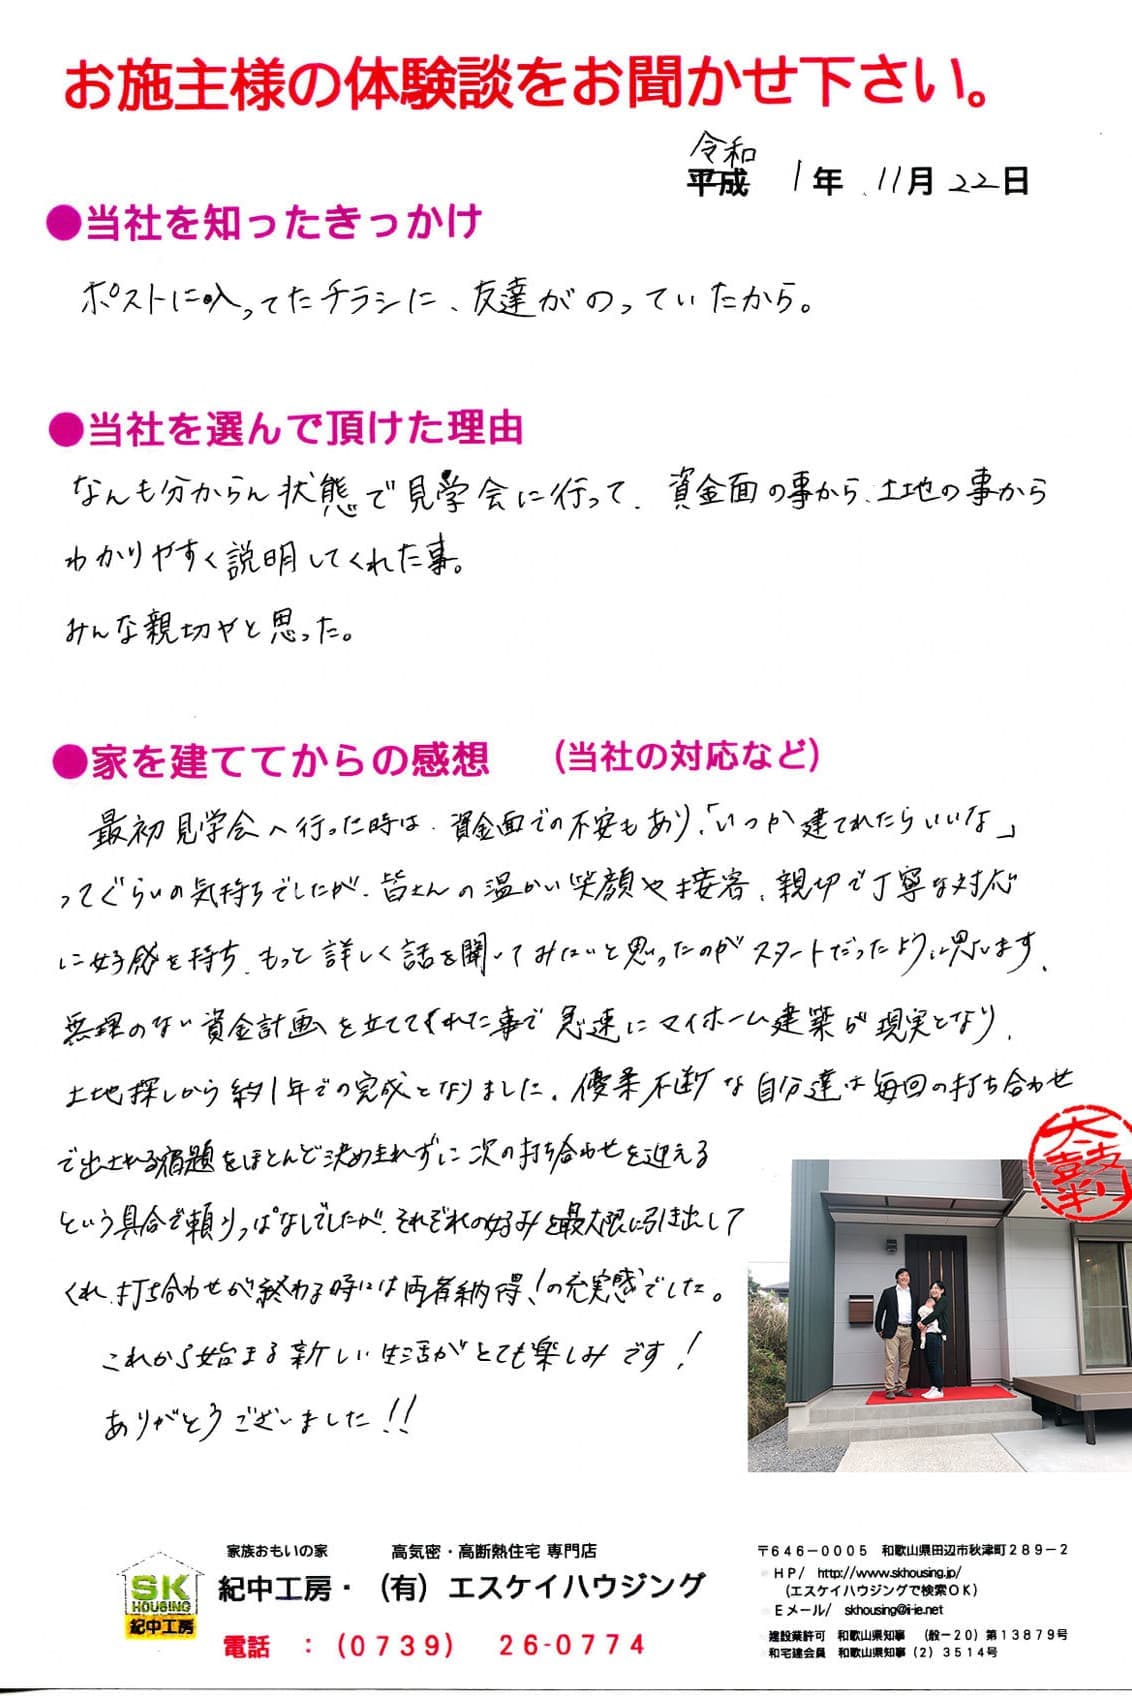 お施主様の体験談をお聞かせ下さい。
令和
平成 1年 11月22日
●当社を知ったきっかけ
ポストに入ってたチラシに、友達がのっていたから。
●当社を選んで頂けた理由
なんも分からん状態で見学会に行って、資金面の事から、土地の事から
わかりやすく説明してくれた事。
みんな親切やと思った。
●家を建ててからの感想 (当社の対応など)
最初見学会へ行った時は、資金面での不安もあり、「いつか建てれたらいいな」
ってぐらいの気持ちでしたが、皆さんの温かい笑顔や接客、親切で丁寧な対応
に好感を持ち、もっと詳しく話を聞いてみたいと思ったのがスタートだったように思います。
無理のない資金計画を立ててくれた事で急速にマイホーム建築が現実となり、
土地探しから約1年での完成となりました。優柔不断な自分達は毎回の打ち合わせ
で出される宿題をほとんど決めきれずに次の打ち合わせを迎える
という具合で頼りっぱなしでしたが、それぞれの好みを最大限に引き出して
くれ、打ち合わせが終わる時には両者納得!の充実感でした。
これから始まる新しい生活がとても楽しみです!
ありがとうございました!!
太鼓判
SK
HOUSING
紀中工房
家族おもいの家 高気密・高断熱住宅 専門店
紀中工房・(有)エスケイハウジング
電話 :(0739) 26-0774
〒646-0005 和歌山県田辺市秋津町289-2
HP/ http://www.skhousing.jp/
(エスケイハウジングで検索OK)
Eメール/ skhousing@i-ie.net
建設業許可 和歌山県知事 (般-20)第13879号
和宅建会員 和歌山県知事(2)3514号